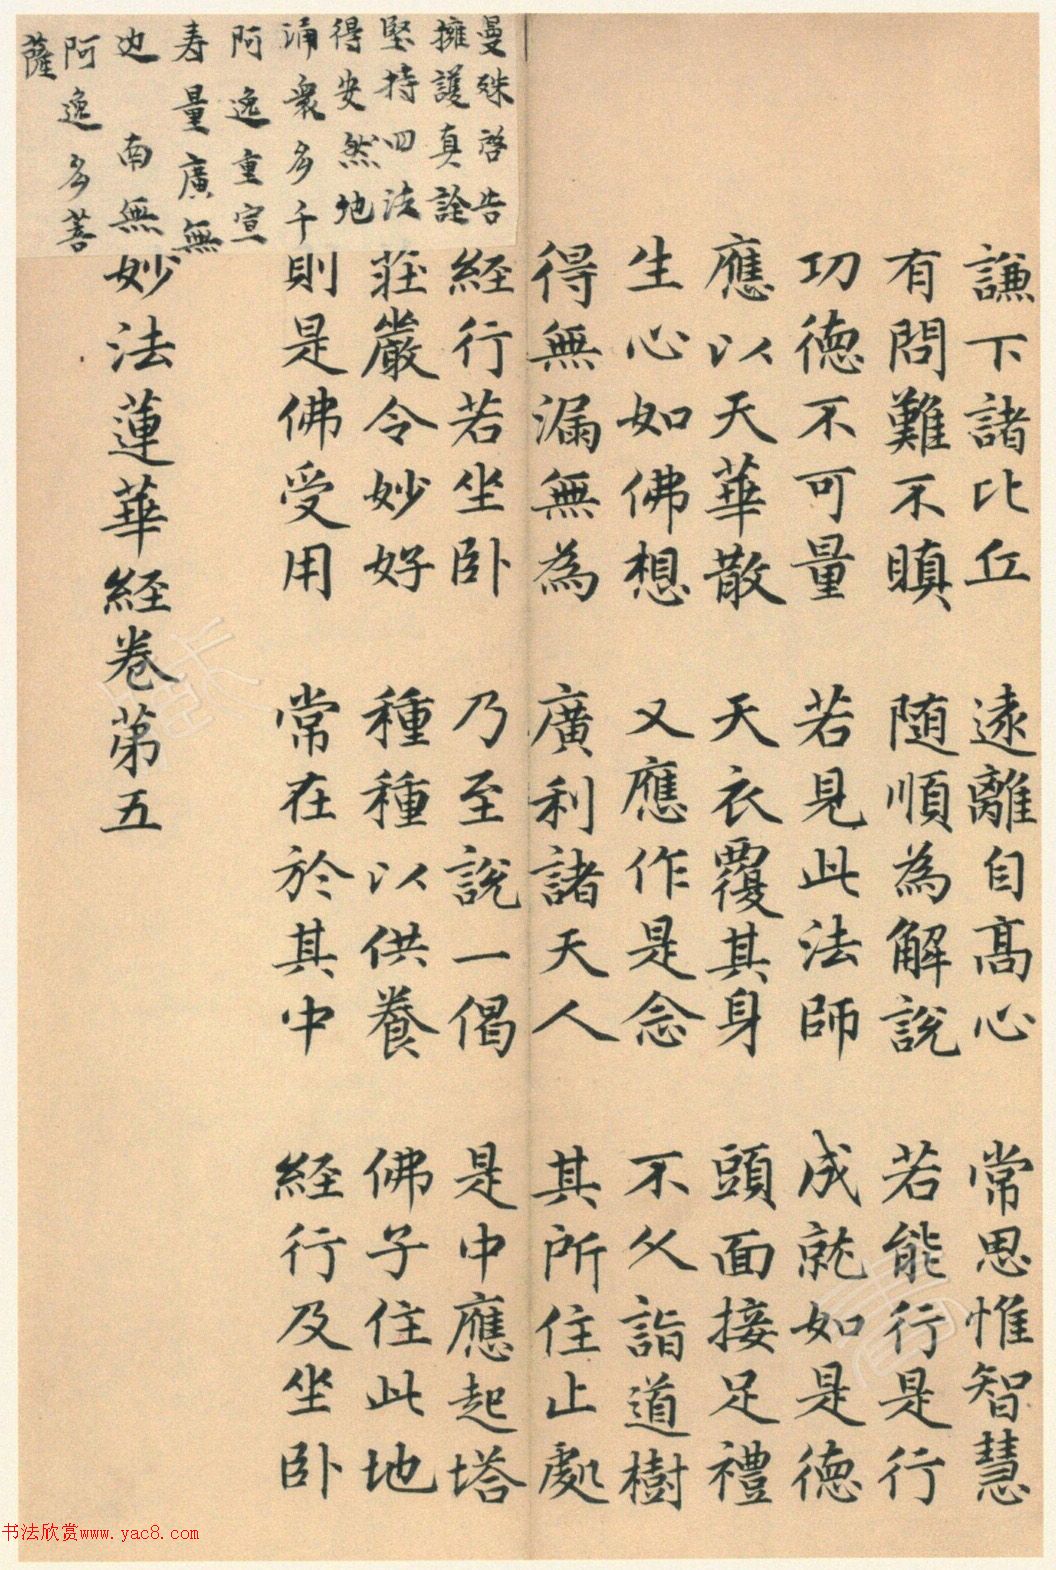 謙下諸比丘 遠離自髙心 常思惟智慧
有問難不瞋 随順為解説 若能行是行
功德不可量 若見此法師 成就如是德
應以天華散 天衣覆其身 頭面接足禮
生心如佛想 又應作是念 不久詣道樹
得無漏無為 廣利諸天人 其所住止處
經行若坐卧 乃至説一偈 是中應起塔
莊嚴令妙好 種種以供養 佛子住此地
則是佛受用 常在於其中 経行及坐卧
妙法蓮華経卷苐五
曼殊啓告
擁護真詮
堅持四法
得安然地
涌衆多千
阿逸重宣
寿量廣無
边 南無
阿逸多菩
薩
书法欣赏www.yac8.com